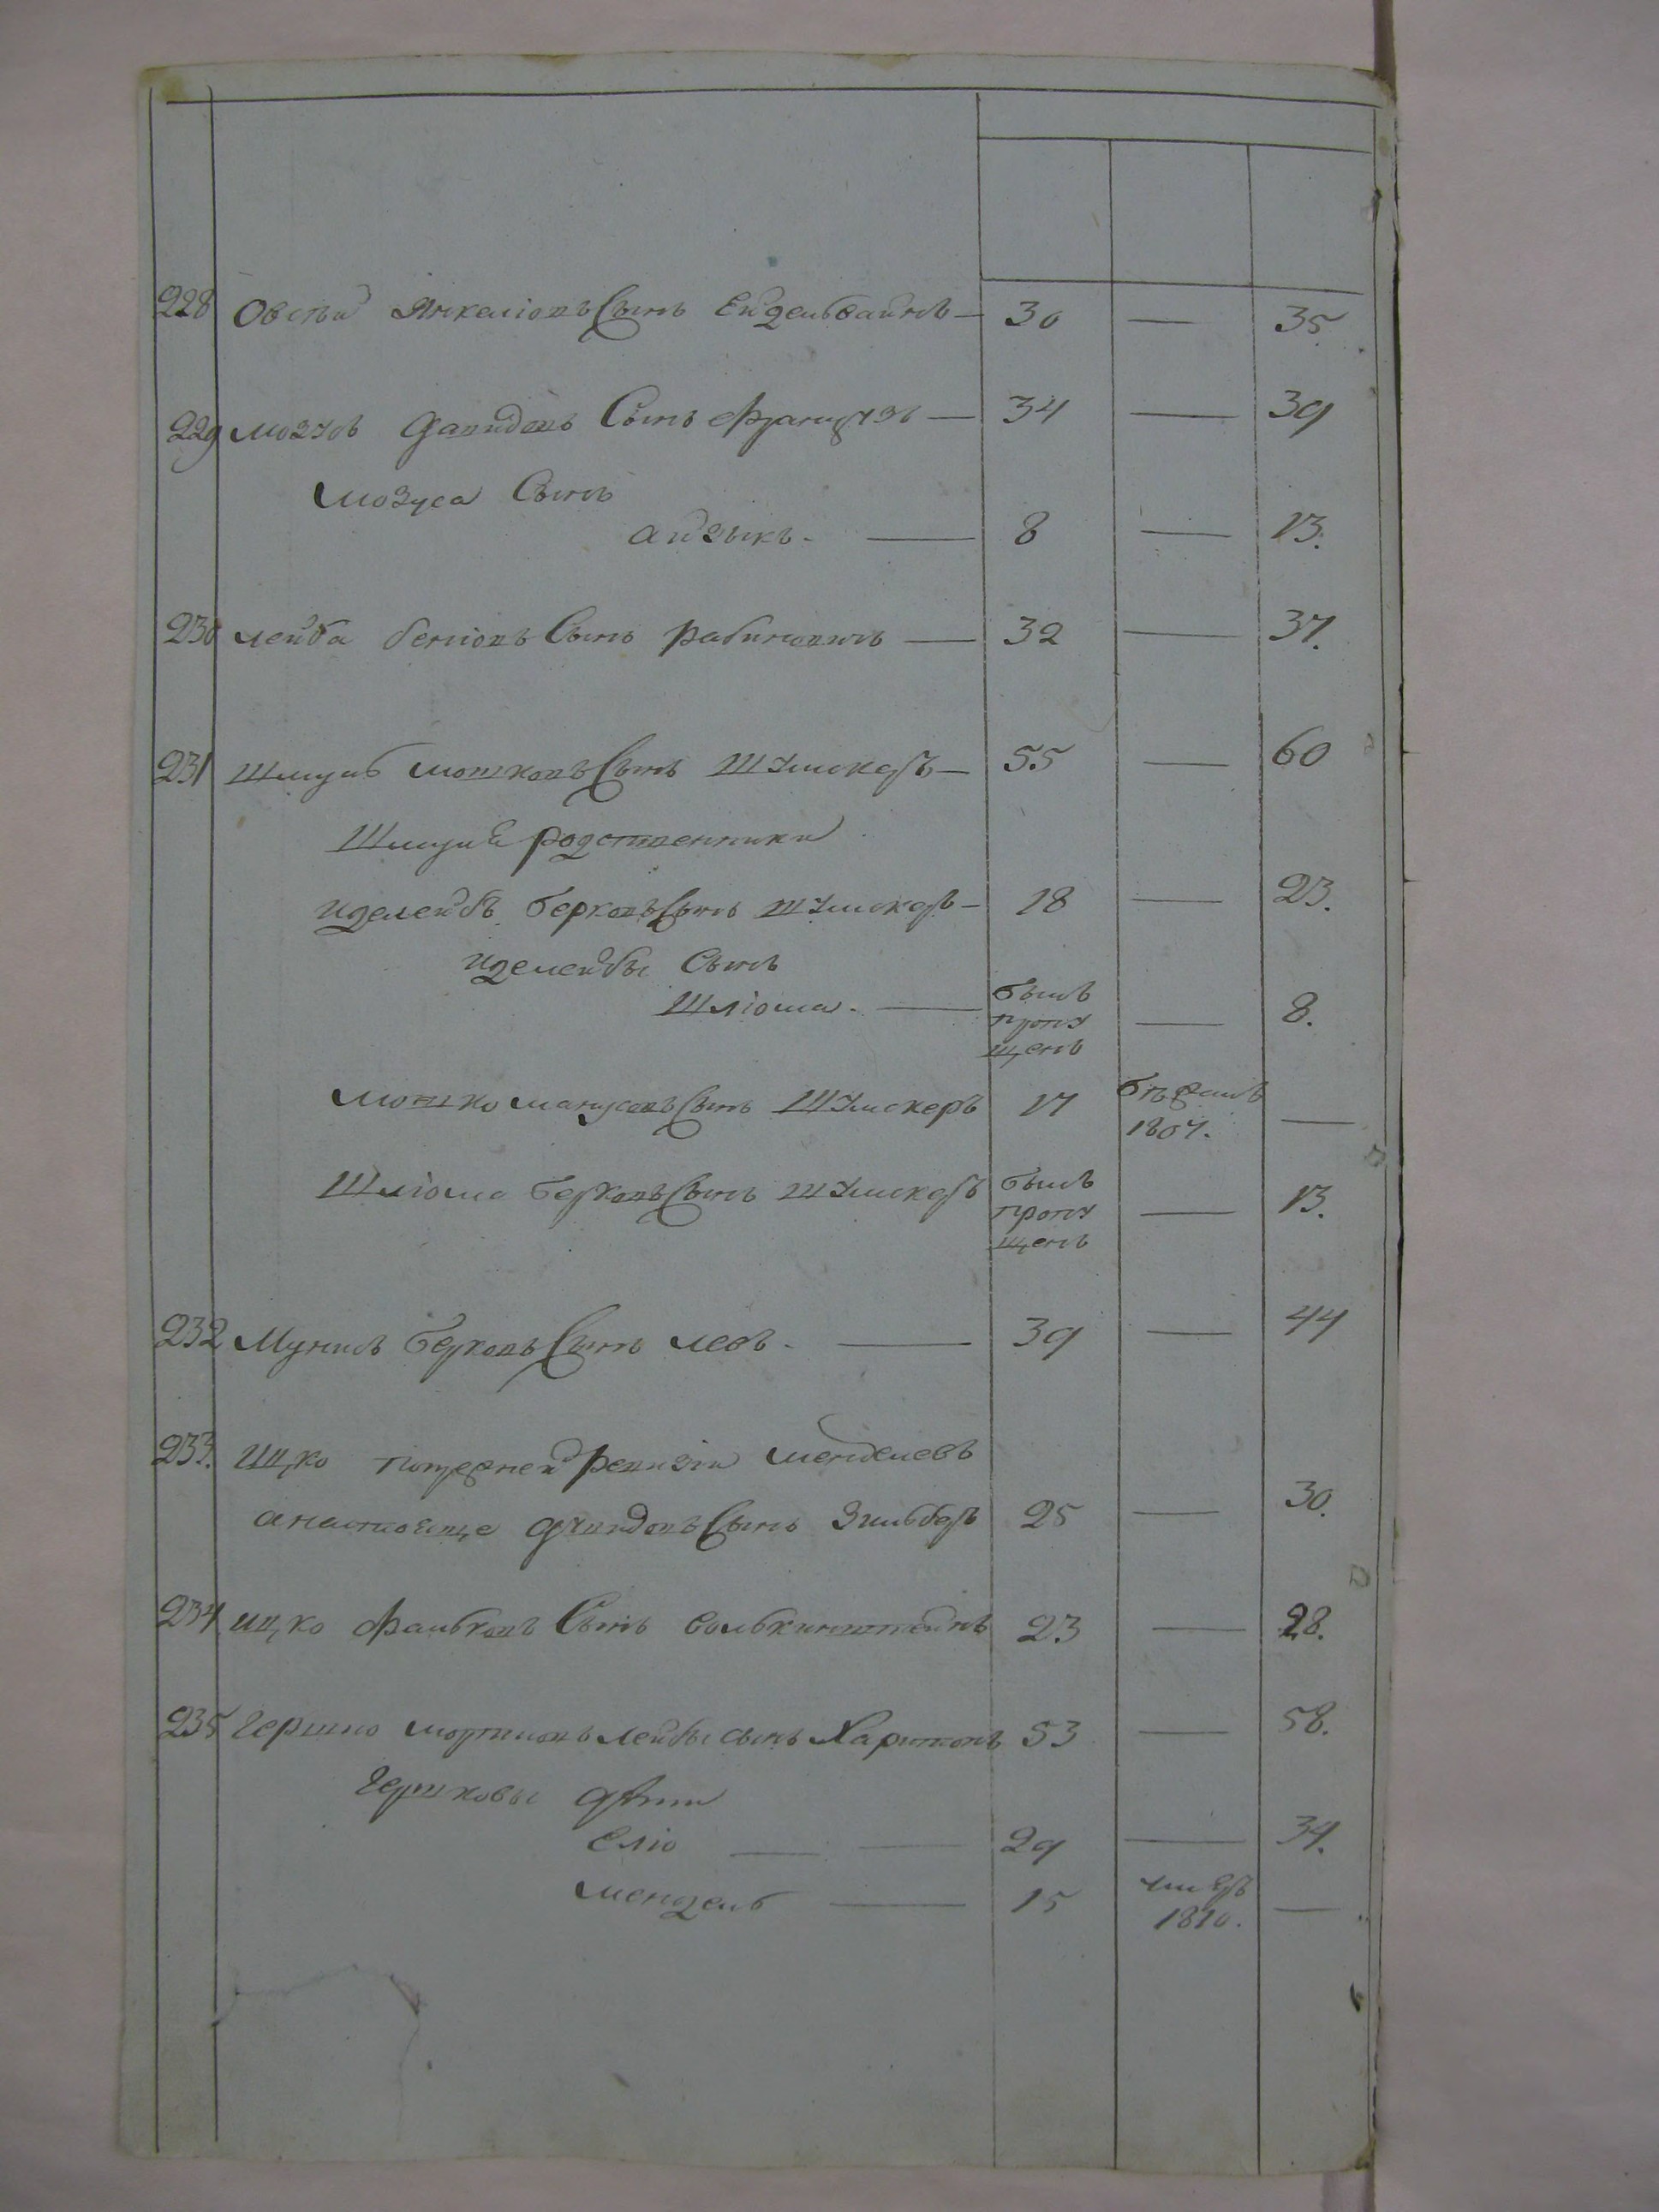 228 Овсѣй Янкеліовъ Сынъ Ейдельбаймъ — 30 — 35
229 Мозусъ Давидовъ Сынъ Французъ — 34 — 39
Мозуса Сынъ
Айзыкъ. — 8 — 13.
230 Лейба Беніовъ Сынъ Рабиновичъ — 32 — 37.
231 Шмуль Мошковъ Сынъ Шумскеръ — 55 — 60
Шмуля родственники
Иделейбъ Берковъ Сынъ Шумскеръ — 18 — 23.
Иделейбы Сынъ
Шліома. — былъ пропу щенъ — 8.
Мошко Манусовъ Сынъ Шумскеръ 17 бѣжалъ 1807. —
Шліома Берковъ Сынъ Шумскеръ былъ пропу щенъ — 13.
232 Мунишъ Берковъ Сынъ Левъ. — 39 — 44
233. Ицко по прежней ревизіи Менделевъ
а настояще Давидовъ Сынъ Зильберъ 25 — 30.
234 Ицко Фальковъ Сынъ Волькинштейнъ 23 — 28.
235 Гершко Мортковъ Лейбы сынъ Харитонъ 53 — 58.
Гершковы дѣти
Еліо — — 29 — 34.
Мендель — 15 умеръ 1810. —